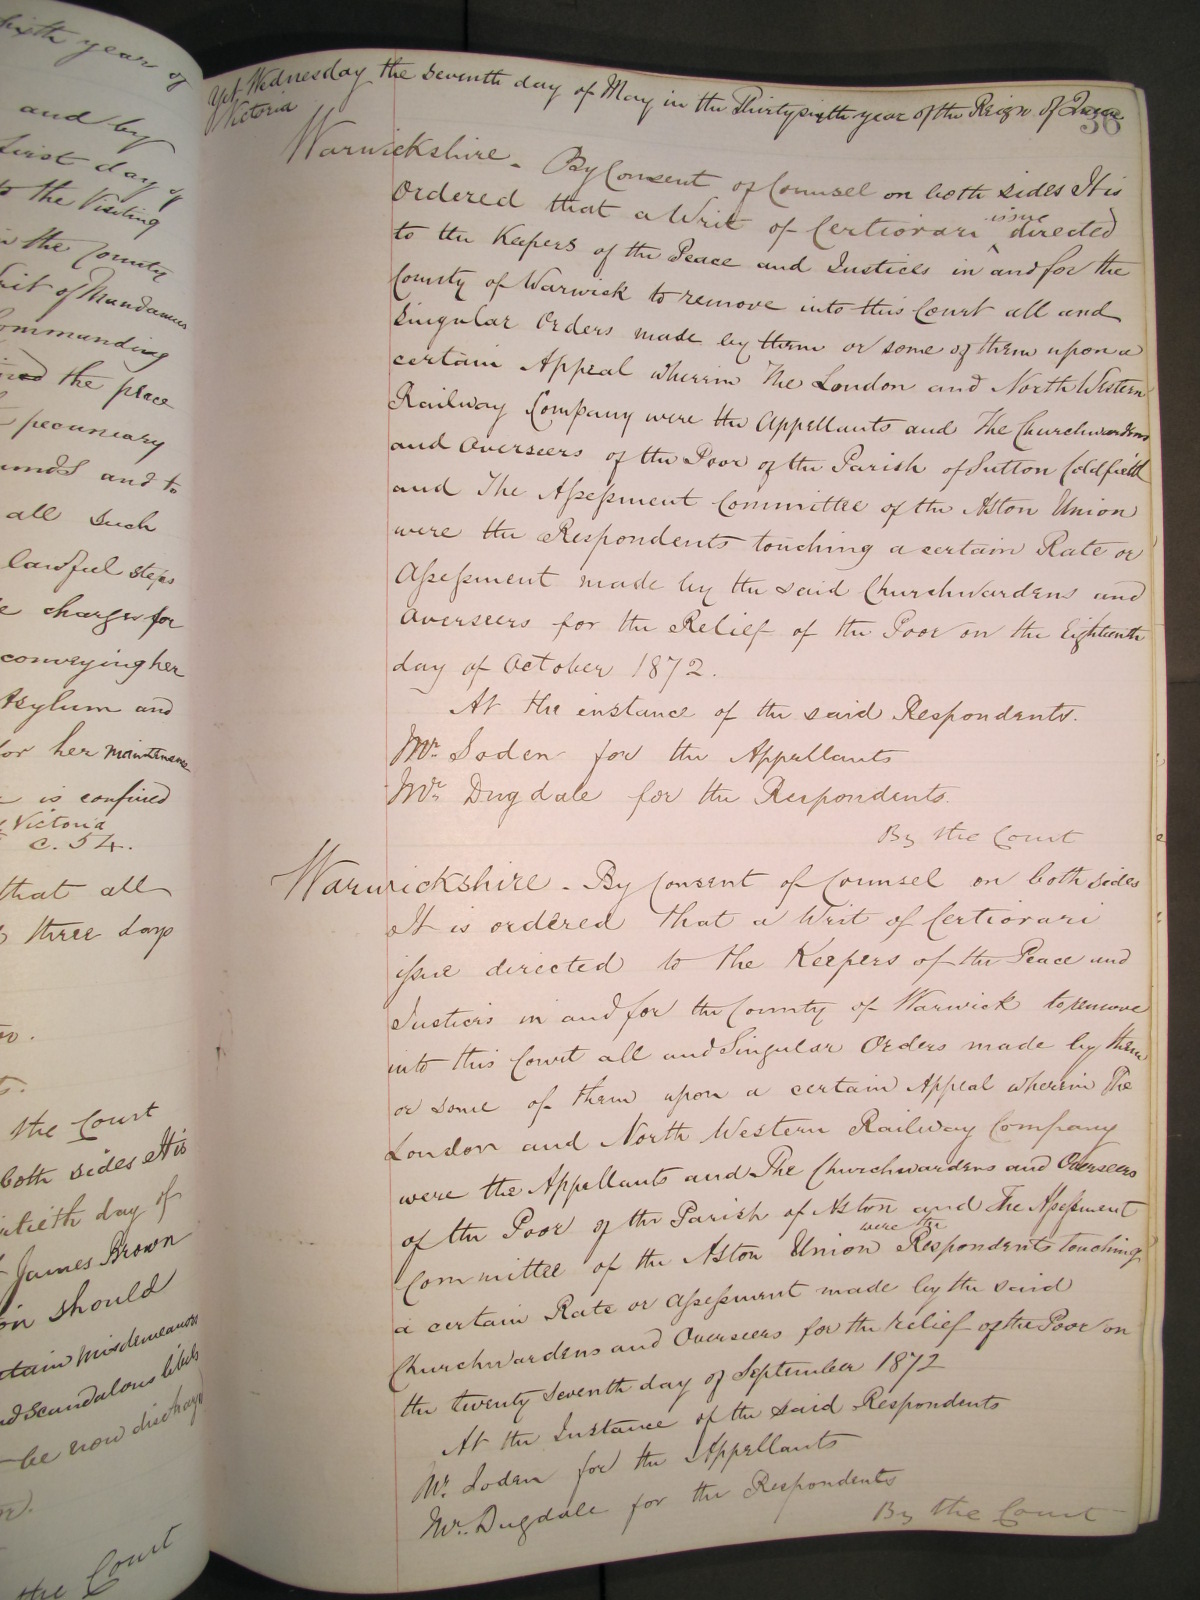 sixth year of
and by
first day of
to the Visiting
in the County
Writ of Mandamus
Commanding
the peace
pecuniary
and to
all such
lawful steps
charges for
conveying her
Asylum and
for her maintenance
is confined
Victoria
c. 54.
that all
three days
the Court
both sides It is
day of
James Brown
should
misdemeanors
and scandalous libels
be now discharged
the Court
Yet Wednesday the seventh day of May in the Thirtysixth year of the Reign of Queen
Victoria
36
Warwickshire - By Consent of Counsel on both sides It is
Ordered that a Writ of Certiorari issue directed
to the Keepers of the Peace and Justices in and for the
County of Warwick to remove into this Court all and
Singular Orders made by them or some of them upon a
certain Appeal wherein The London and North Western
Railway Company were the Appellants and The Churchwardens
and Overseers of the Poor of the Parish of Sutton Coldfield
and The Assessment Committee of the Aston Union
were the Respondents touching a certain Rate or
Assessment made by the said Churchwardens and
Overseers for the Relief of the Poor on the Eighteenth
day of October 1872.
At the instance of the said Respondents.
Mr. Soden for the Appellants
Mr. Dugdale for the Respondents.
By the Court
Warwickshire - By Consent of Counsel on both sides
It is ordered that a Writ of Certiorari
issue directed to the Keepers of the Peace and
Justices in and for the County of Warwick to remove
into this Court all and Singular Orders made by them
or some of them upon a certain Appeal wherein The
London and North Western Railway Company
were the Appellants and The Churchwardens and Overseers
of the Poor of the Parish of Aston and The Assessment
Committee of the Aston Union were the Respondents touching
a certain Rate or assessment made by the said
Churchwardens and Overseers for the relief of the Poor on
the twenty seventh day of September 1872
At the Instance of the said Respondents
Mr. Soden for the Appellants
Mr. Dugdale for the Respondents
By the Court